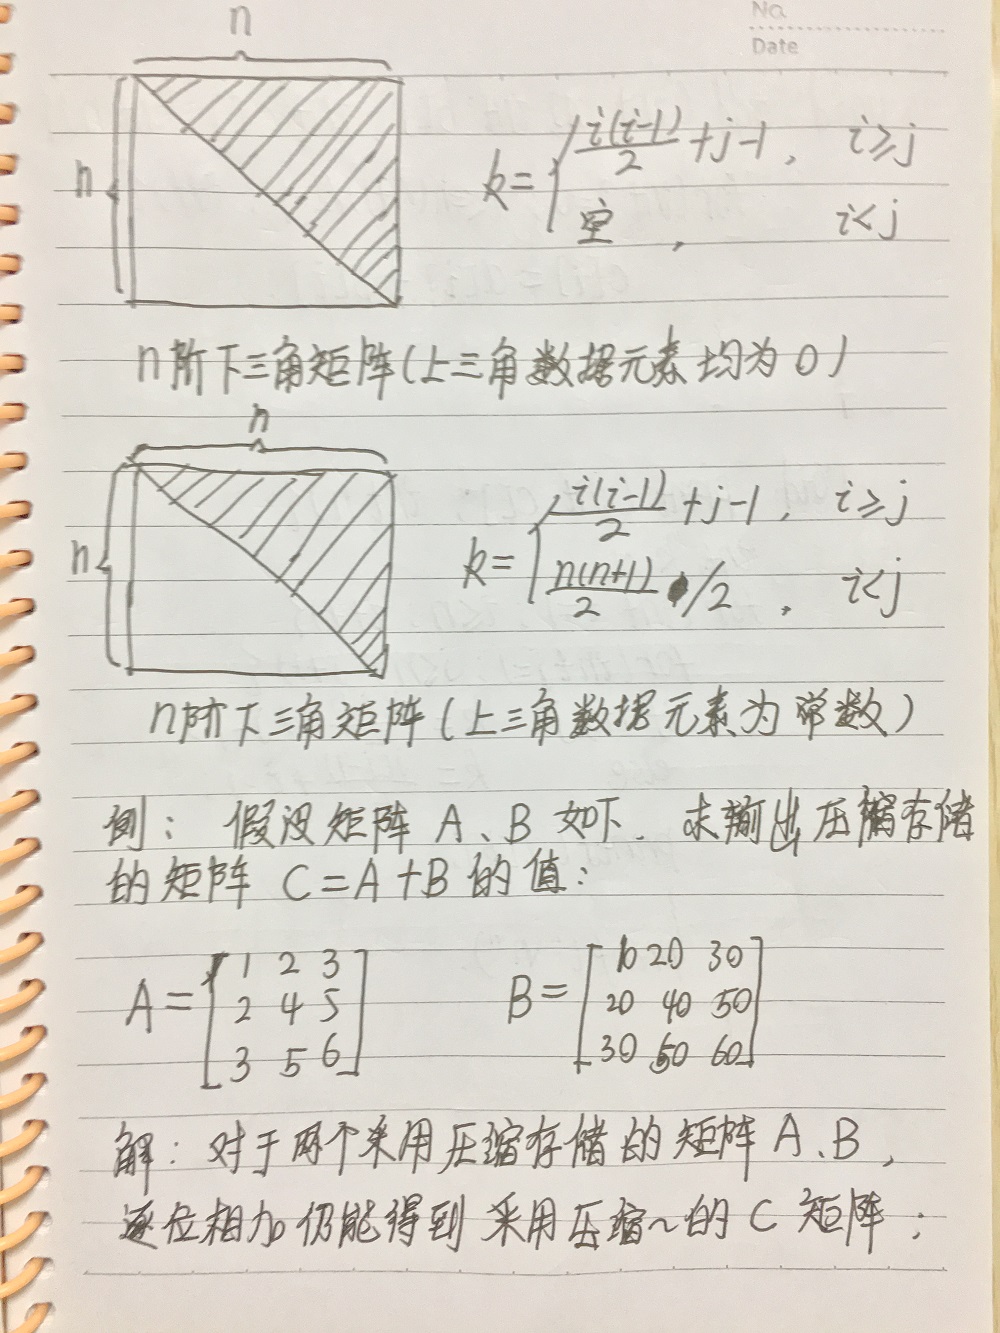 No.
Date
n
n
k = { i(i-1)/2 + j-1 , i≥j
空 , i<j
n阶下三角矩阵(上三角数据元素均为0)
n
n
k = { i(i-1)/2 + j-1 , i≥j
n(n+1)/2 /2 , i<j
n阶下三角矩阵(上三角数据元素为常数)
例: 假设矩阵 A、B 如下. 求输出压缩存储
的矩阵 C=A+B 的值:
A = [ 1 2 3
2 4 5
3 5 6 ]
B = [ 10 20 30
20 40 50
30 50 60 ]
解: 对于两个采用压缩存储的矩阵 A、B,
逐位相加仍能得到采用压缩~的 C 矩阵;